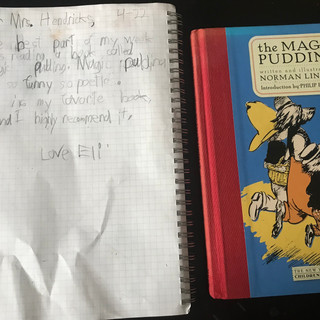 Mrs. Hendricks, 4-22
best part of my week
reading a book called
Pudding. Magic pudding
funny so poetic.
is my favorite books,
and I highly recommend it.
Love Eli
the MAG
PUDDIN
written and illustra
NORMAN LIN
Introduction by PHILIP
THE NEW
CHILDREN'S